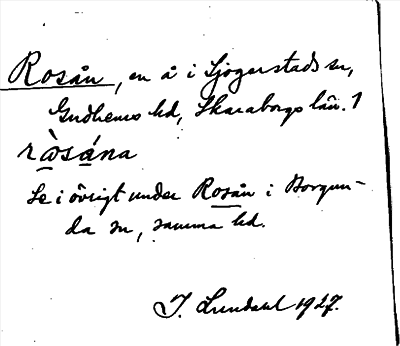 Rosån, en å i Sjogerstads sn,
Gudhems hd, Skaraborgs län. 1
ròsána
Se i övrigt under Rosån i Borgun-
da sn, samma hd.
I. Lundahl 1927.